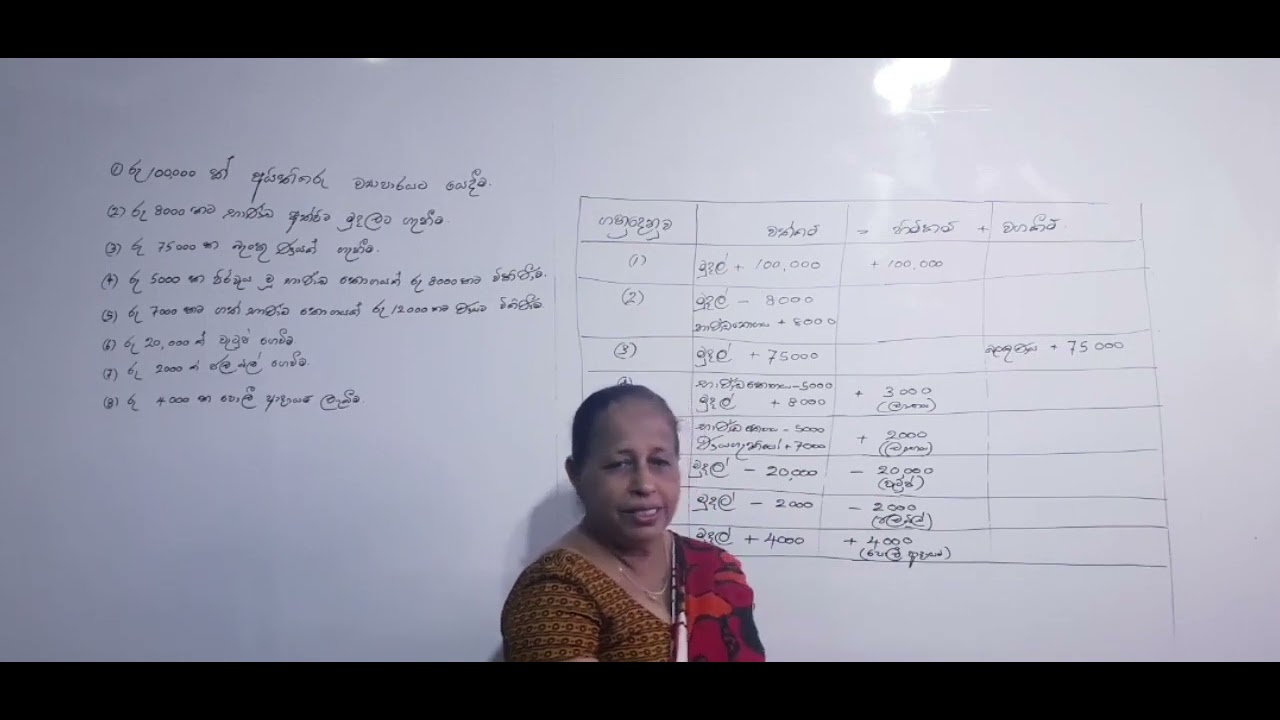 ① රු 100,000 ක් අයිතිකරු ව්‍යාපාරයට යෙදීම.
(2) රු 8000 කට භාණ්ඩ අත්පිට මුදලට ගැනීම.
(3) රු 75000 ක බැංකු ණයක් ගැනීම.
(4) රු 5000 ක පිරිවැය වූ භාණ්ඩ තොගයක් රු 8000 කට විකිණීම.
(5) රු 7000 කට ගත් භාණ්ඩ තොගයක් රු 12000 කට ණයට විකිණීම
(6) රු 20,000 ක් වැටුප් ගෙවීම.
(7) රු 2000 ක් ජල බිල් ගෙවීම.
(8) රු 4000 ක පොලී ආදායම් ලැබීම.
ගනුදෙනුව වත්කම් = හිමිකම් + වගකීම්
(1) මුදල් + 100,000 + 100,000
(2) මුදල් - 8000
භාණ්ඩතොගය + 8000
(3) මුදල් + 75000 බැංකුණය + 75 000
භාණ්ඩතොගය - 5000 + 3000
මුදල් + 8000 (ලාභය)
භාණ්ඩ තොගය - 5000 + 2000
ණයගැතියෝ + 7000 (ලාභය)
මුදල් - 20,000 - 20,000
(වැටුප්)
මුදල් - 2000 - 2000
(ජලබිල්)
මුදල් + 4000 + 4000
(පොලී ආදායම්)